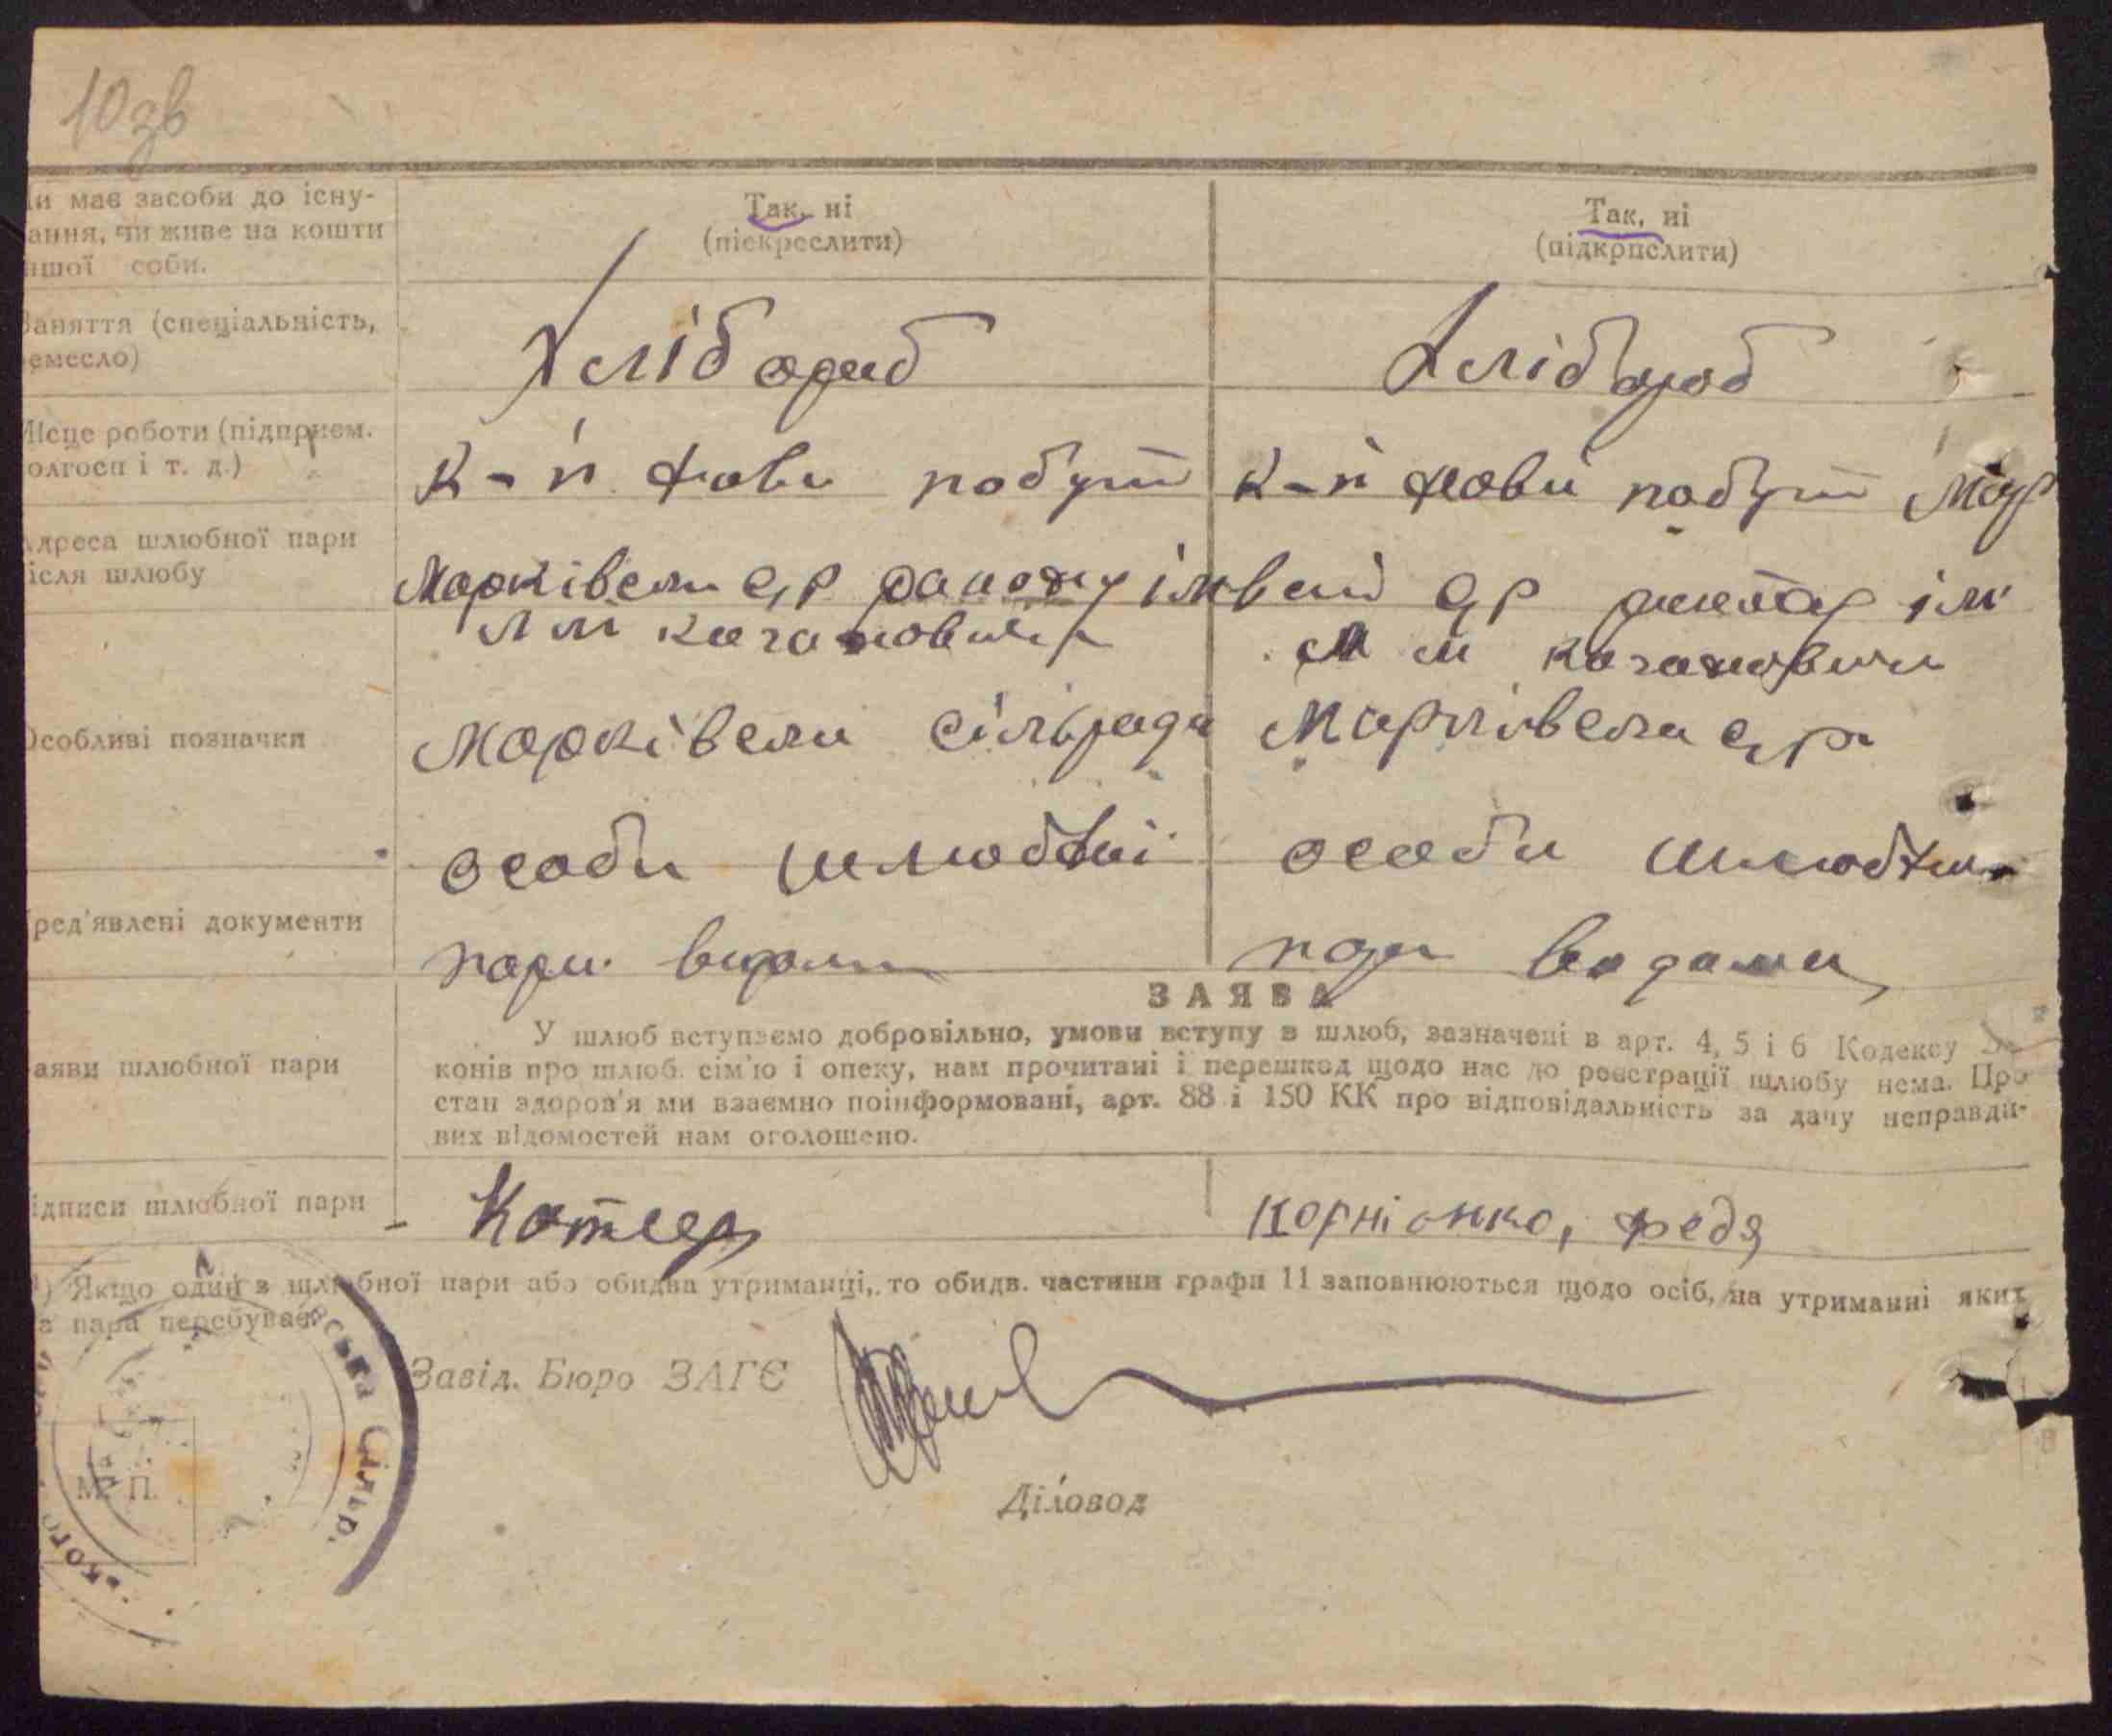 10зв
и має засоби до існу-
ання, чи живе на кошти
ншої соби.
Так, ні
(піекреслити)
Так, ні
(підкрпслити)
аняття (спеціальність,
емесло)
Хлібороб
Хлібороб
Місце роботи (підприєм.
олгосп і т. д.)
к-п нови побут
к-п нови побут Мар
дреса шлюбної пари
ісля шлюбу
Марківсли с/р району ім
вски с/р району ім
Л М Кагановича
Л М Кагановича
Особливі позначки
Марківски сільради
Марківски с/р
особи шлюбни
особи шлюбни
ред'явлені документи
пари видани
пари видани
ЗАЯВА
У шлюб вступаємо добровільно, умови вступу в шлюб, зазначені в арт. 4, 5 і 6 Кодексу За-
конів про шлюб. сім'ю і опеку, нам прочитані і перешкод щодо нас до реєстрації шлюбу нема. Про
стан здоров'я ми взаємно поінформовані, арт. 88 і 150 КК про відповідальність за дачу неправди-
вих відомостей нам оголошено.
аяви шлюбної пари
ідписи шлюбної пари
Котляр
Корніонко, Федя
) Якщо один з шлюбної пари або обидва утриманці, то обидв. частини графи 11 заповнюються щодо осіб, на утриманні яких
а пара перебуває.
Завід. Бюро ЗАГЄ
М. П.
ська Сільр.
кого
Діловод